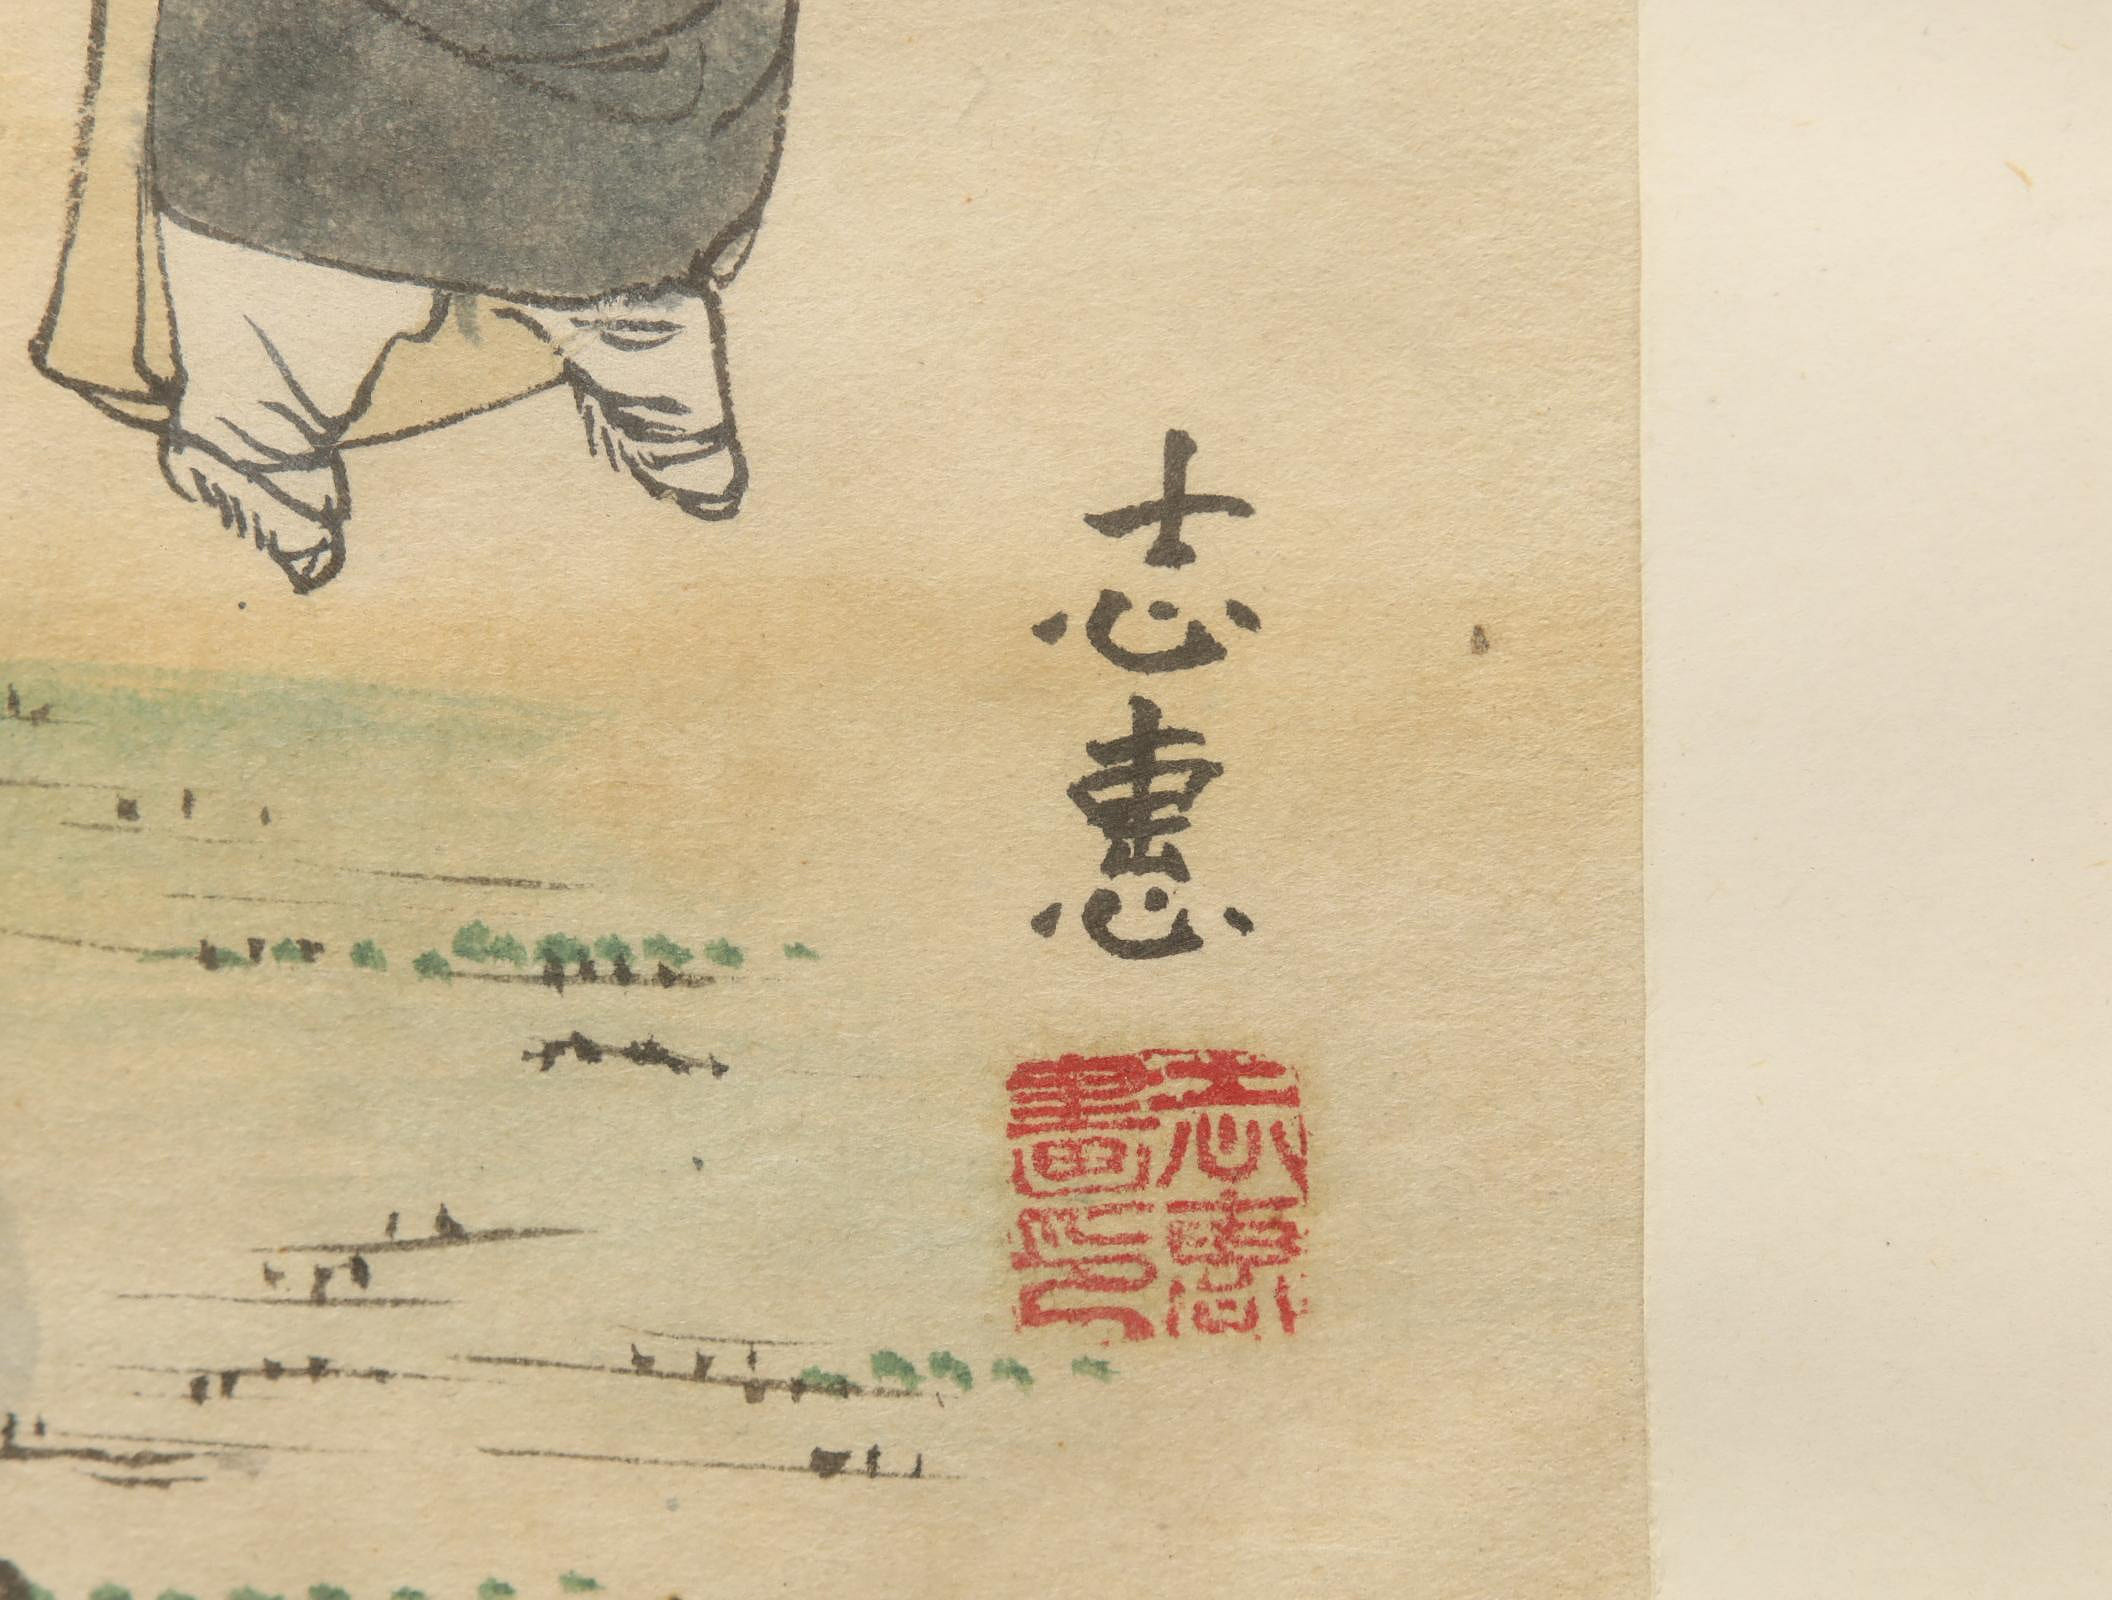 志惠
志惠
畫印